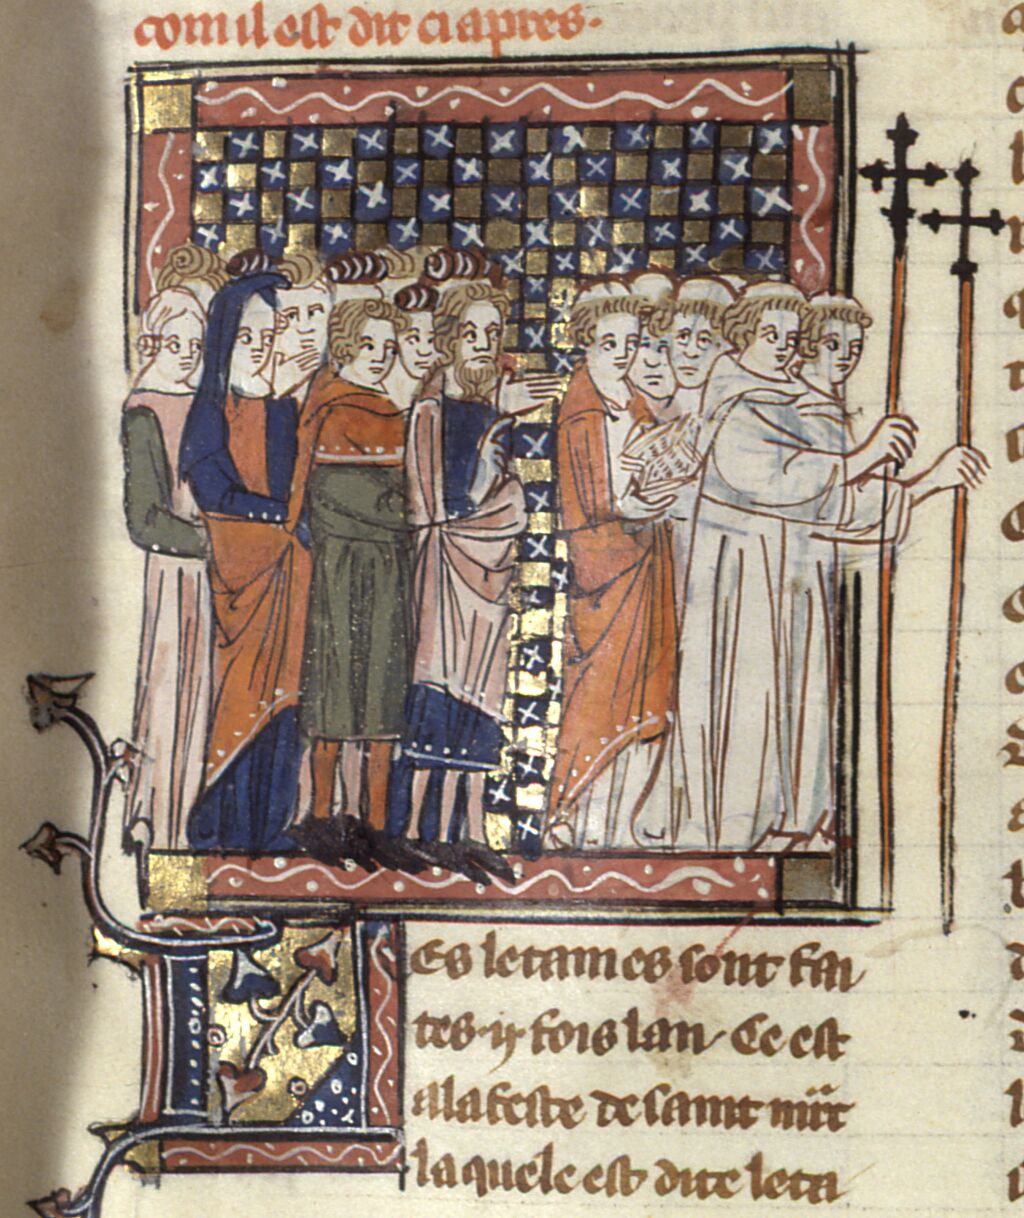 com il est dit ci apres.
Les letanies sont fai
tes .ij. fois lan. Ce est
a la feste de saint mrc
laquele est dite leta